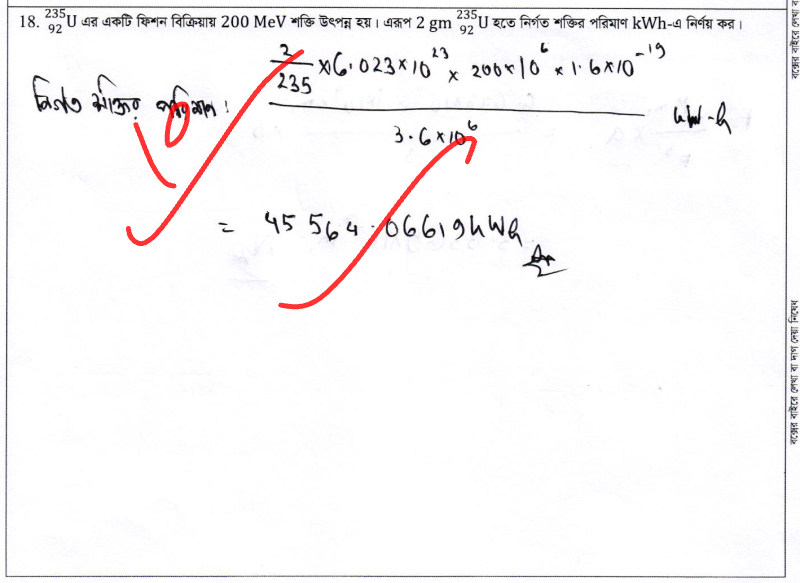 18. ²³⁵₉₂U এর একটি ফিশন বিক্রিয়ায় 200 MeV শক্তি উৎপন্ন হয়। এরূপ 2 gm ²³⁵₉₂U হতে নির্গত শক্তির পরিমাণ kWh-এ নির্ণয় কর।
নির্গত শক্তির পরিমাণ :
2/235 × 6.023×10²³ × 200×10⁶ × 1.6×10⁻¹⁹
3.6×10⁶
kW-h
= 45564.06619 kWh
বক্সের বাইরে লেখা বা দাগ দেয়া নিষেধ